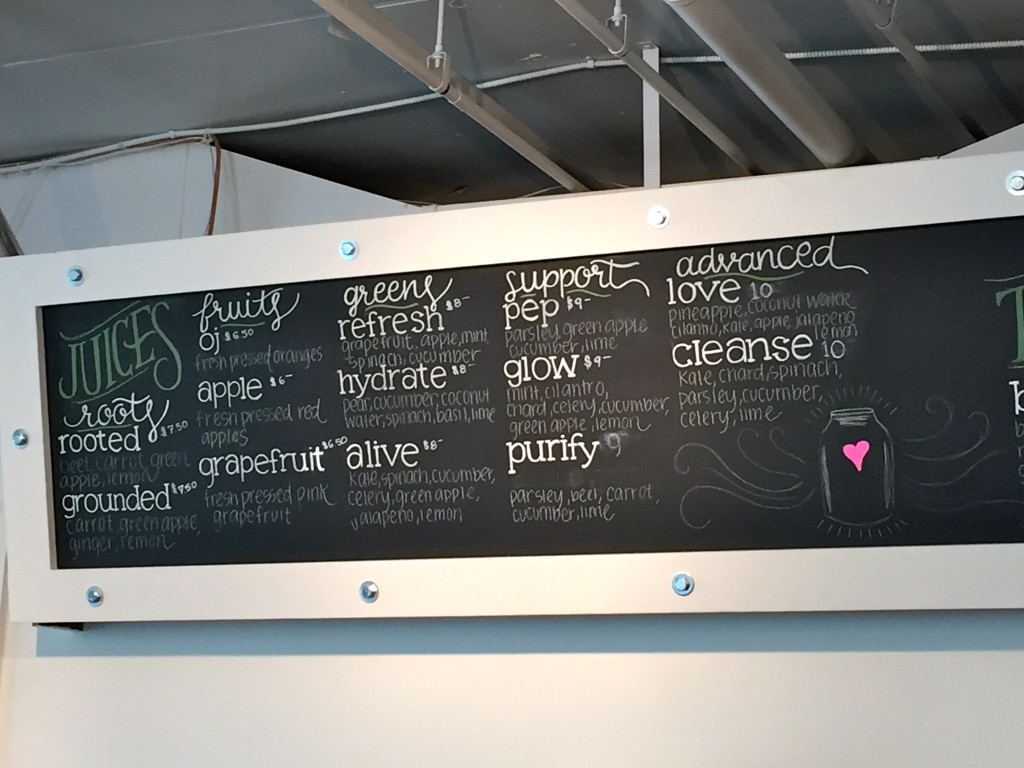 JUICES
roots
rooted $7.50
beet, carrot, green
apple, lemon
grounded $7.50
carrot, green apple,
ginger, lemon
fruits
oj $6.50
fresh pressed oranges
apple $6-
fresh pressed red
apples
grapefruit $6.50
fresh pressed pink
grapefruit
greens
refresh $8-
grapefruit, apple, mint,
spinach, cucumber
hydrate $8-
pear, cucumber, coconut
water, spinach, basil, lime
alive $8-
kale, spinach, cucumber,
celery, green apple,
jalapeño, lemon
support
pep $9-
parsley, green apple
cucumber, lime
glow $9-
mint, cilantro,
chard, celery, cucumber,
green apple, lemon
purify 9
parsley, beet, carrot,
cucumber, lime
advanced
love 10
pineapple, coconut water
cilantro, kale, apple, jalapeño
lemon
cleanse 10
kale, chard, spinach,
parsley, cucumber,
celery, lime